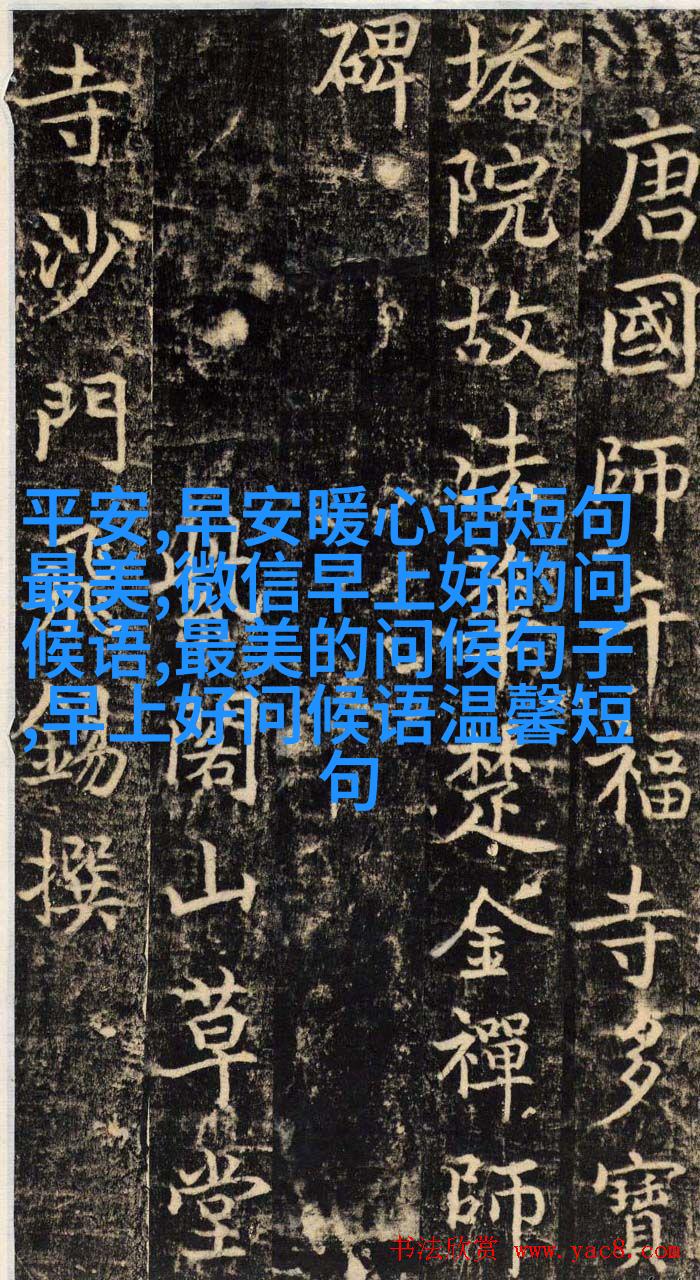 唐國師千福寺多寶
塔院故法華楚金禪師
碑
閣山草堂
寺沙門飛錫撰
平安,早安暖心话短句
最美,微信早上好的问
候语,最美的问候句子
,早上好问候语温馨短
句
书法欣赏 www.yac8.com